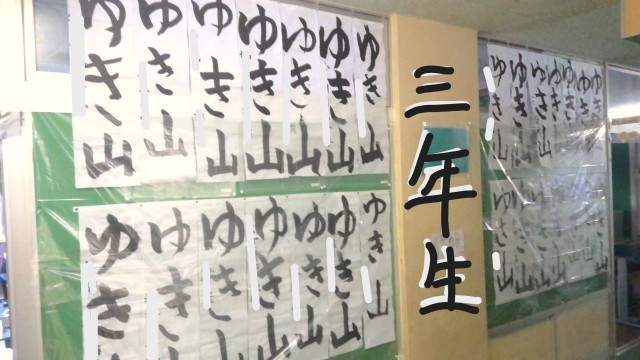 ゆき山
ゆき山
ゆき山
ゆき山
ゆき山
ゆき山
ゆき山
ゆき
ゆき山
ゆき山
ゆき山
ゆき山
ゆき山
ゆき山
三年生
ゆき山
ゆき山
ゆき山
ゆき山
ゆき山
ゆき山
ゆき山
ゆき山
ゆき山
ゆき山
ゆき山